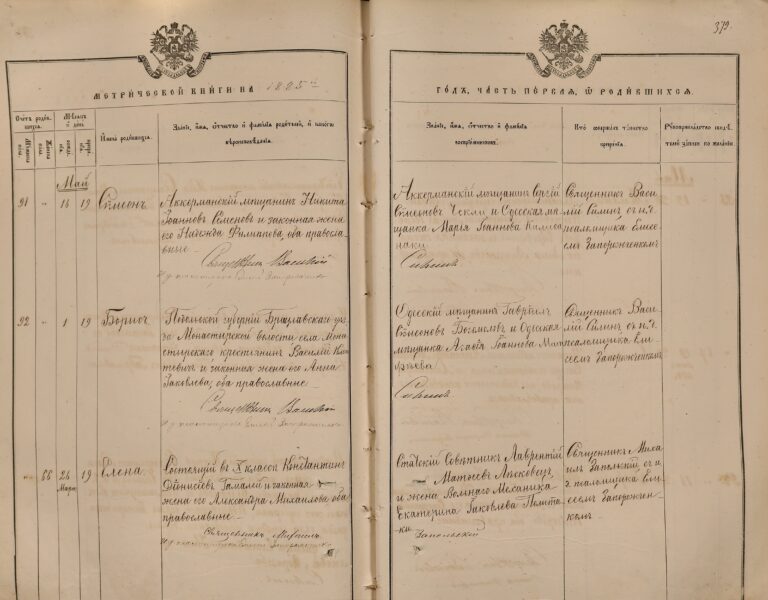 379.
МЕТРИЧЕСКОЙ КНИГИ НА 1885й
ГОДЪ, ЧАСТЬ ПЕРВАЯ, Ѡ РОДИВШИХСЯ.
Счетъ родив-
шихся.
Мужеска
Женска
Мѣсяцъ
и день.
рожденія
крещенія
Имена родившихся.
Званіе, имя, отчество и фамилія родителей, и какого
вѣроисповѣданія.
Званіе, имя, отчество и фамилія
воспріемниковъ.
Кто совершалъ таинство
крещенія.
Рукоприкладство свидѣ-
телей записи по желанію
Май
91 " 16 19 Симеонъ
Аккерманскій мѣщанинъ Никита
Іоанновъ Семеновъ и законная жена
его Надежда Филиппова, оба православ-
ные.
Священникъ Василій
Аккерманскій мѣщанинъ Сергій
Симеоновъ и Одесская мѣ-
щанка Марія Іоаннова
Священникъ Васи-
лій Силинъ съ и. д.
псаломщика Елис-
еемъ Запорожченкомъ
92 " 1 19 Борисъ
Подольской губерніи Брацлавскаго уѣз-
да Монастырской волости села Мона-
стырскаго крестьянинъ Василій
и законная жена его Анна
Іаковлева, оба православные
Священникъ Василій
Одесскій мѣщанинъ Гавріилъ
Симеоновъ Богомоловъ и Одесская
мѣщанка Агафія Іоаннова Мат
фѣева
Священникъ Васи-
лій Силинъ съ и. д.
псаломщика Ели-
сеемъ Запорожченкомъ
" 66 26 19 Елена
Марта
Состоящій въ X классѣ Константинъ
Діонисіевъ Гамалѣй и законная
жена его Александра Михаилова оба
православные
Священникъ Михаилъ
Запольскій
Статскій Совѣтникъ Лаврентій
Матѳеевъ
и жена Вольнаго Механика
Екатерина Іаковлева
Священникъ Миха-
илъ Запольскій, съ и.
д. псаломщика Ели-
сеемъ Запорожчен-
комъ